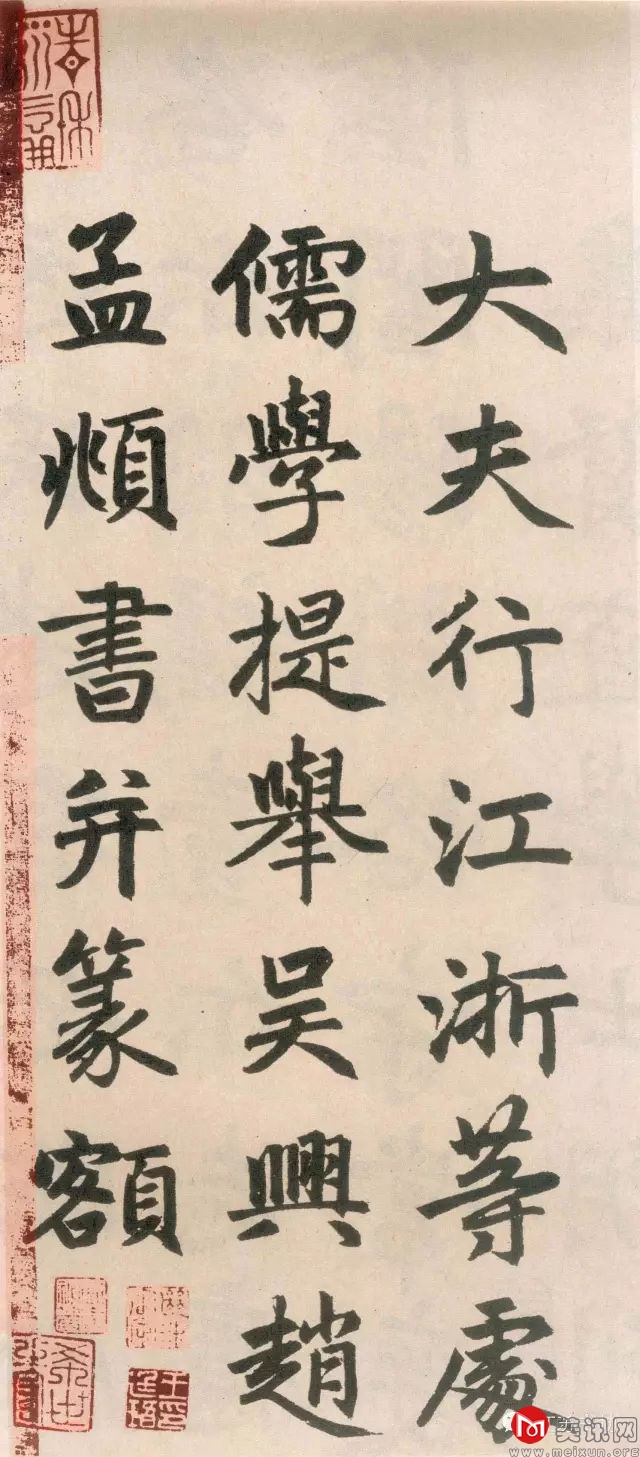 大夫行江浙等處
儒學提舉吴興趙
孟頫書并篆額
美讯网
www.meixun.org